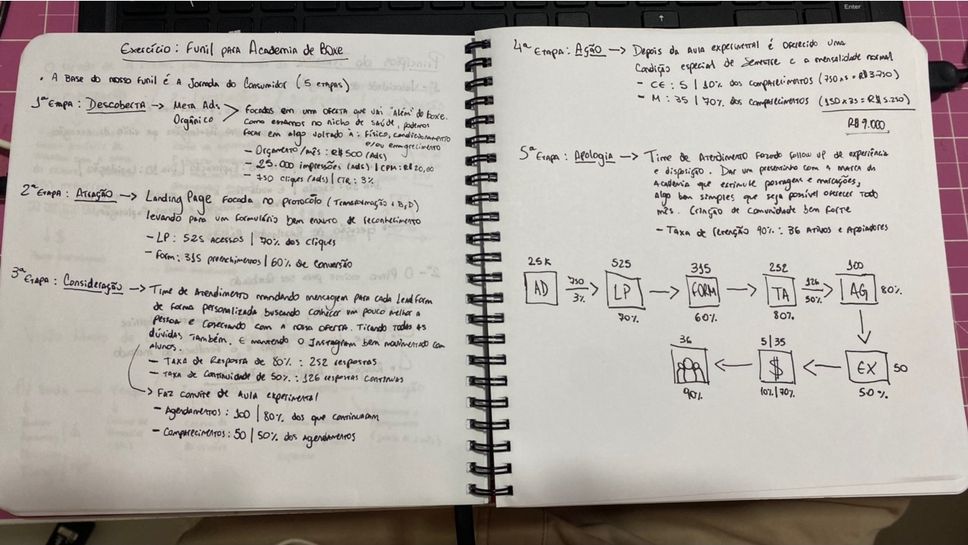 Enter
Exercício: Funil para Academia de Boxe
• A Base do nosso funil é a Jornada do Consumidor (5 etapas)
1ª Etapa: Descoberta → Meta Ads
Orgânico
Focados em uma oferta que vai "Além" do boxe.
Como estamos no nicho de saúde, podemos
focar em algo voltado à: físico, condicionamento
e/ou emagrecimento
- Orçamento/mês: R$500 (Ads)
- 25.000 impressões (Ads) | CPM: R$20,00
- 750 cliques (Ads) | CTR: 3%
2ª Etapa: Atração → Landing Page focada no protocolo (Transformação + B, D)
levando para um formulário bem enxuto de reconhecimento
- LP: 525 acessos | 70% dos cliques
- Form: 315 preenchimentos | 60% de conversão
3ª Etapa: Consideração → Time de Atendimento mandando mensagem para cada lead form
de forma personalizada buscando conhecer um pouco melhor a
pessoa e conectando com a nossa oferta. Tirando todas as
dúvidas também. E mantendo o Instagram bem movimentado com
alunos.
- Taxa de Resposta de 80%: 252 respostas
- Taxa de Continuidade de 50%: 126 respostas contínuas
→ Faz convite de Aula experimental
- Agendamentos: 100 | 80% dos que continuaram
- Comparecimentos: 50 | 50% dos agendamentos
4ª Etapa: Ação → Depois da aula experimental é oferecido uma
condição especial de Semestre e a mensalidade normal
- CE: 5 | 10% dos comparecimentos (750 x 5 = R$3.750)
- M: 35 | 70% dos comparecimentos (150 x 35 = R$5.250)
R$9.000
5ª Etapa: Apologia → Time de Atendimento fazendo follow up de experiência
e disposição. Dar um presentinho com a marca da
Academia que estimule postagens e marcações,
algo bem simples que seja possível oferecer todo
mês. Criação de comunidade bem forte
- Taxa de retenção 90%: 36 Ativos e Apoiadores
25K 525 315 252 100
AD 750 3% LP FORM TA 126 50% AG 80%
70% 60% 80%
36 5|35
$ EX 50
90% 10%|70% 50%